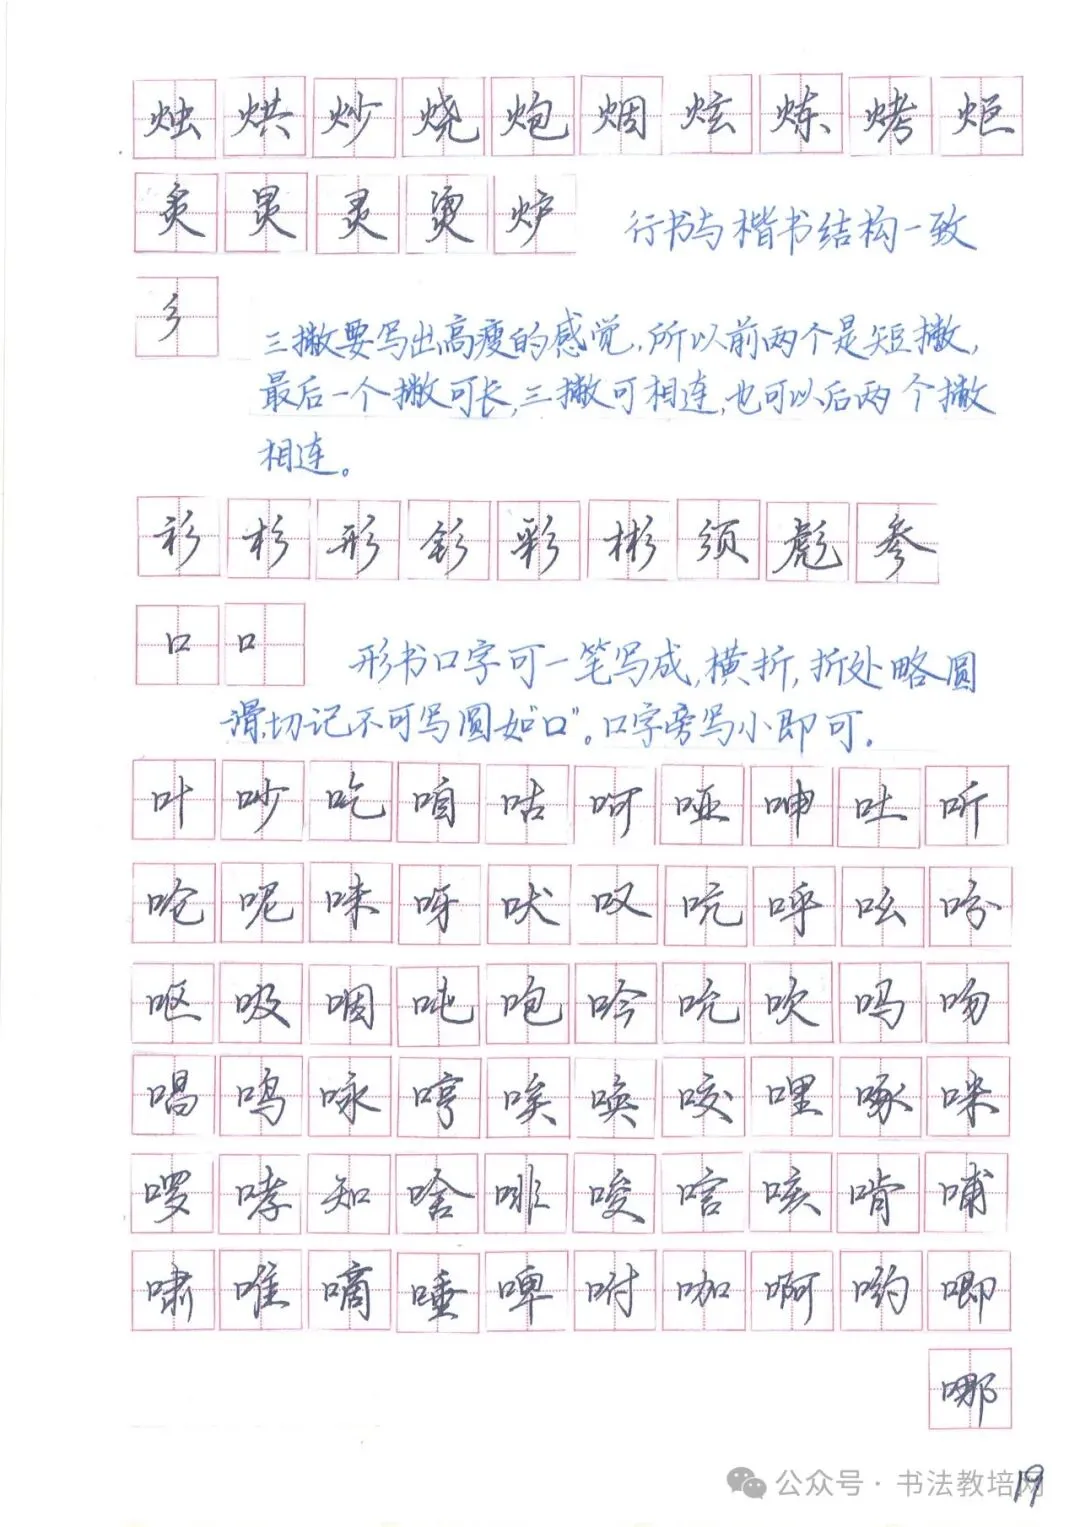 烛 烘 炒 烧 炮 烟 炫 炼 烤 炬
炙 炅 灵 烫 炉 行书与楷书结构一致
彡
三撇要写出高瘦的感觉,所以前两个是短撇,
最后一个撇可长,三撇可相连,也可以后两个撇
相连。
衫 杉 形 钐 彩 彬 须 彪 参
口 口 形书口字可一笔写成,横折,折处略圆
滑,切记不可写圆如"口"。口字旁写小即可.
叶 吵 吃 咱 咕 呵 哑 呻 吐 听
呛 呢 味 呀 吠 叹 吭 呼 吆 吩
呕 吸 咽 吨 咆 吟 吭 吹 吗 吻
唱 鸣 咏 哼 唉 唤 咬 哩 啄 咪
啰 哮 知 啥 啡 唆 咳 啃 哺
啸 唯 嘀 唾 啤 咐 咖 啊 哟 唧
哪
公众号 · 书法教培网
19